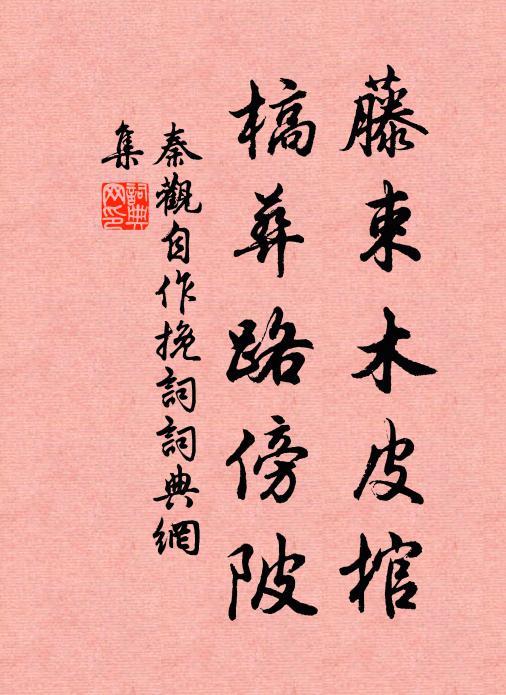 藤束木皮棺
槁葬路傍陂
秦觀自作挽詞詞典網
集
詞典網印